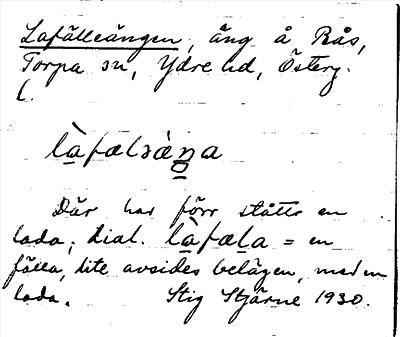 Lafälleängen, äng å Rås,
Torpa sn, Ydre hd, Österg.
l.
làfælsàŋa
Där har förr stått en
lada; dial. làfæla = en
fälla, lite avsides belägen, med en
lada. Stig Stjärne 1930.